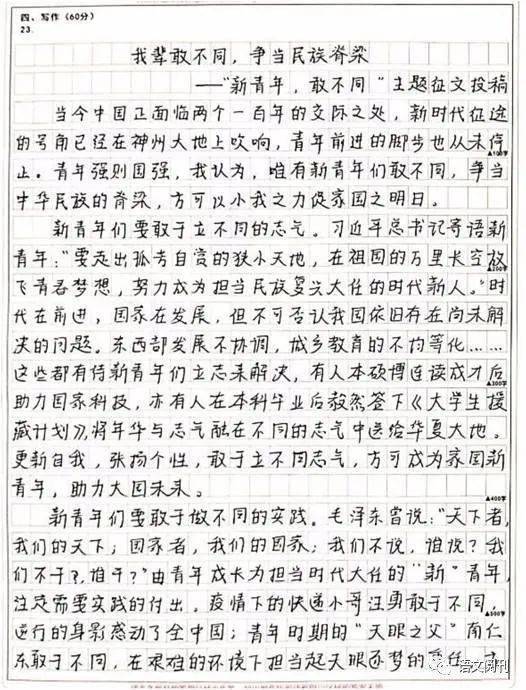 四、写作（60分）
23.
我辈敢不同，争当民族脊梁
——“新青年，敢不同”主题征文投稿
当今中国正面临两个一百年的交际之处，新时代征途
的号角已经在神州大地上吹响，青年前进的脚步也从未停
▲100字
止。青年强则国强，我认为，唯有新青年们敢不同，争当
中华民族的脊梁，方可以小我之力促家国之明日。
新青年们要敢于立不同的志气。习近平总书记寄语新
青年：“要走出孤芳自赏的狭小天地，在祖国的万里长空放
▲200字
飞青春梦想，努力成为担当民族复兴大任的时代新人。”时
代在前进，国家在发展，但不可否认我国依旧存在尚未解
决的问题。东西部发展不协调，城乡教育的不均等化……
这些都有待新青年们立志来解决，有人本硕博连读成才后
▲300字
助力国家科技，亦有人在本科毕业后毅然签下《大学生援
藏计划》，将年华与志气融在不同的志气中送给华夏大地。
更新自我，张扬个性，敢于立不同志气，方可成为家国新
青年，助力大国未来。
▲400字
新青年们要敢于做不同的实践。毛泽东曾说：“天下者，
我们的天下；国家者，我们的国家；我们不说，谁说？我
们不干？，谁干？”由青年成长为担当时代大任的“新”青年，
注定需要实践的付出。疫情下的快递小哥汪勇敢于不同，
▲500字
逆行的身影感动了全中国；青年时期的“天眼之父”南仁
东敢于不同，在艰难的环境下担当起天眼逐梦的责任
语文阅刊